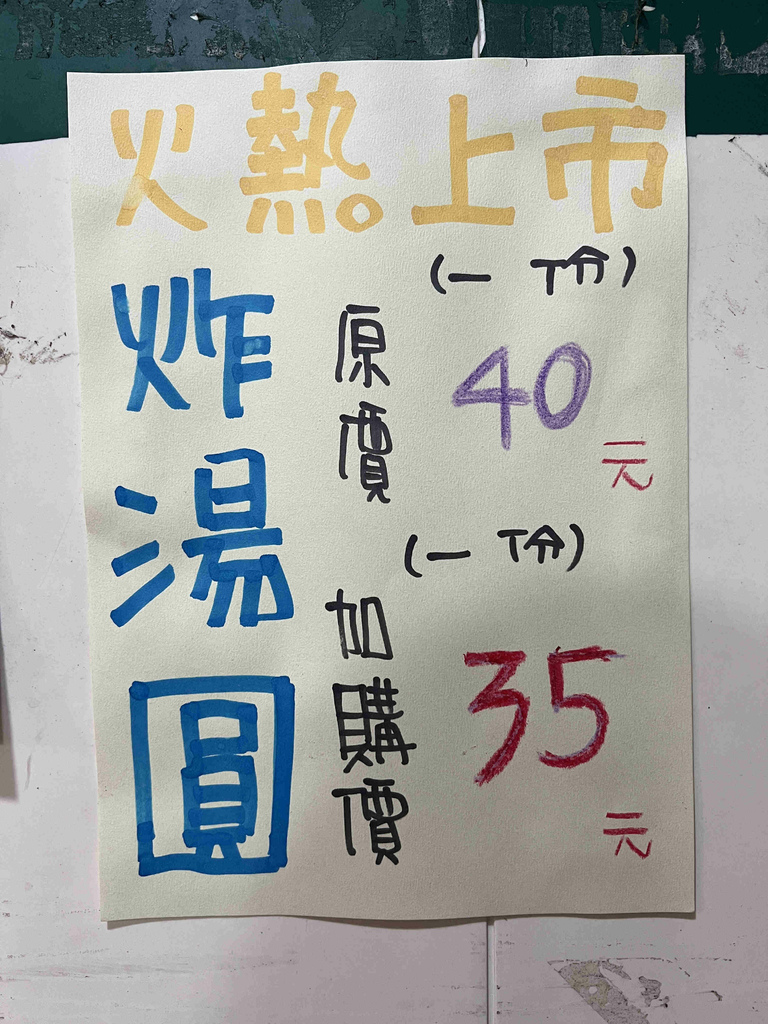 火熱上市
炸湯圓
原價
(一份)
40元
加購價
(一份)
35元